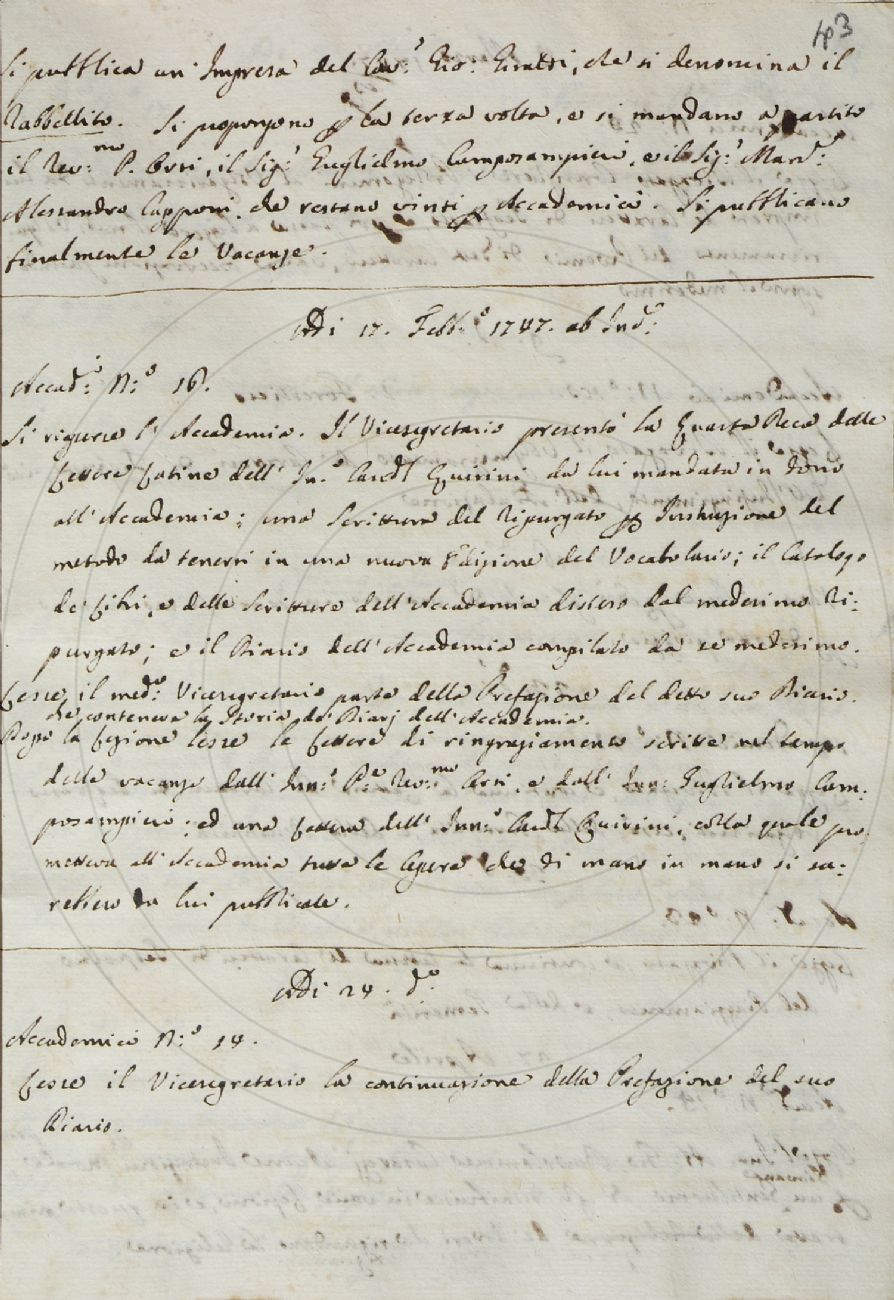 43
Si pubblica un' Impresa del Cav.e Gio: Giraldi, che si denomina il
Rabbellito. Si propongono p la terza volta, e si mandano a partito
il Rev.mo P. Orsi, il Sig.r Guglielmo Camposampieri, e il Sig.r Marc.e
Alessandro Capponi, che restano vinti p Accademici. Si pubblicano
finalmente le Vacanze.
Adi 17. Febb.o 1747. ab Inc.e
Accad.i N.o 16.
Si riaperse l'Accademia. Il Vicesegretario presentò la Quarta Deca delle
Lettere Latine dell' In.o Card.l Quirini da lui mandata in dono
all'Accademia; una Scrittura del Ripurgato p Instruzione del
metodo da tenersi in una nuova Edizione del Vocabolario; il Catalogo
de' Libri, e delle Scritture dell'Accademia disteso dal medesimo Ri-
purgato; e il Diario dell'Accademia compilato da se medesimo.
Lesse il med.o Vicesegretario parte della Prefazione del detto suo Diario.
che conteneva la Storia de' Diarj dell'Accademia.
Dopo la Lezione lesse le Lettere di ringraziamento scritte nel tempo
delle vacanze dall' Inn.o P.e Rev.mo Orsi, e dall' Inn.o Guglielmo Cam-
posampieri; ed una Lettera dell' Inn.o Card.l Quirini, colla quale pro-
metteva all'Accademia tutte le Opere che di mano in mano si sa-
rebbero da lui pubblicate.
Adi 24. d.o
Accademici N.o 14.
Lesse il Vicesegretario la continuazione della Prefazione del suo
Diario.